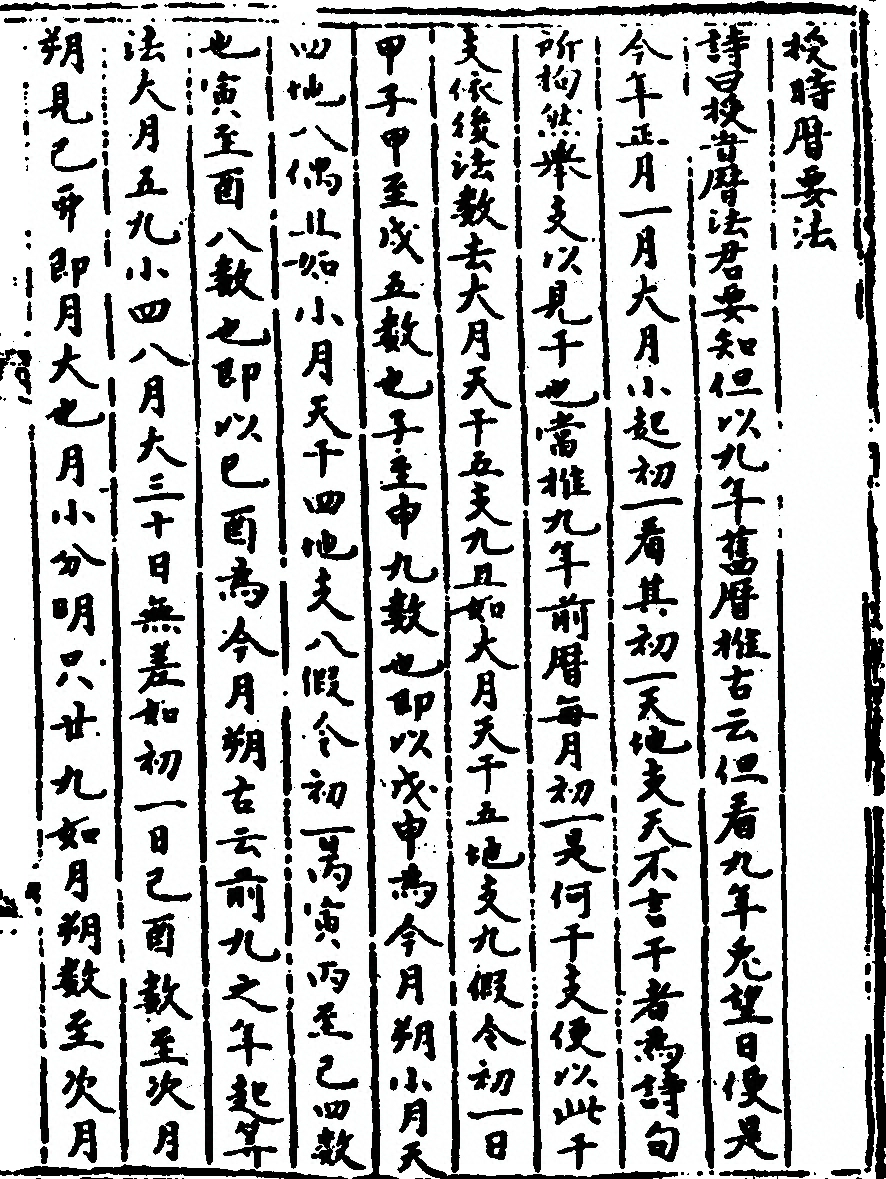 授時曆要法
詩曰授皆曆法君要知但以九年舊曆推古云但看九年兎望日便是
今年正月一月大月小起初一看其初一天地支天不言干者爲詩句
所拘然舉支以見干也當推九年前曆每月初一是何干支便以此干
支依後法數去大月天干五支九且如大月天干五地支九假令初一日
甲子甲至戊五數也子至申九數也即以戊申爲今月朔小月天
四地八偶且如小月天干四地支八假令初一丙寅丙至己四數
也寅至酉八數也即以己酉爲今月朔古云前九之年起算
法大月五九小四八月大三十日無差如初一日己酉數至次月
朔見己卯即月大也月小分明只廿九如月朔數至次月